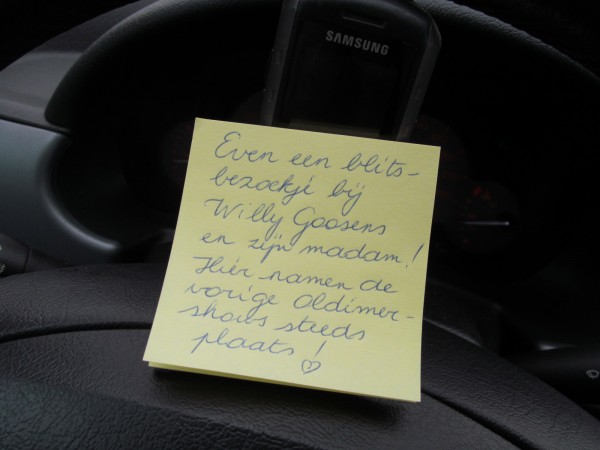 SAMSUNG
Even een blits-
bezoekje bij
Willy Goosens
en zijn madam!
Hier namen de
vorige Oldimer-
shows steeds
plaats! ♡